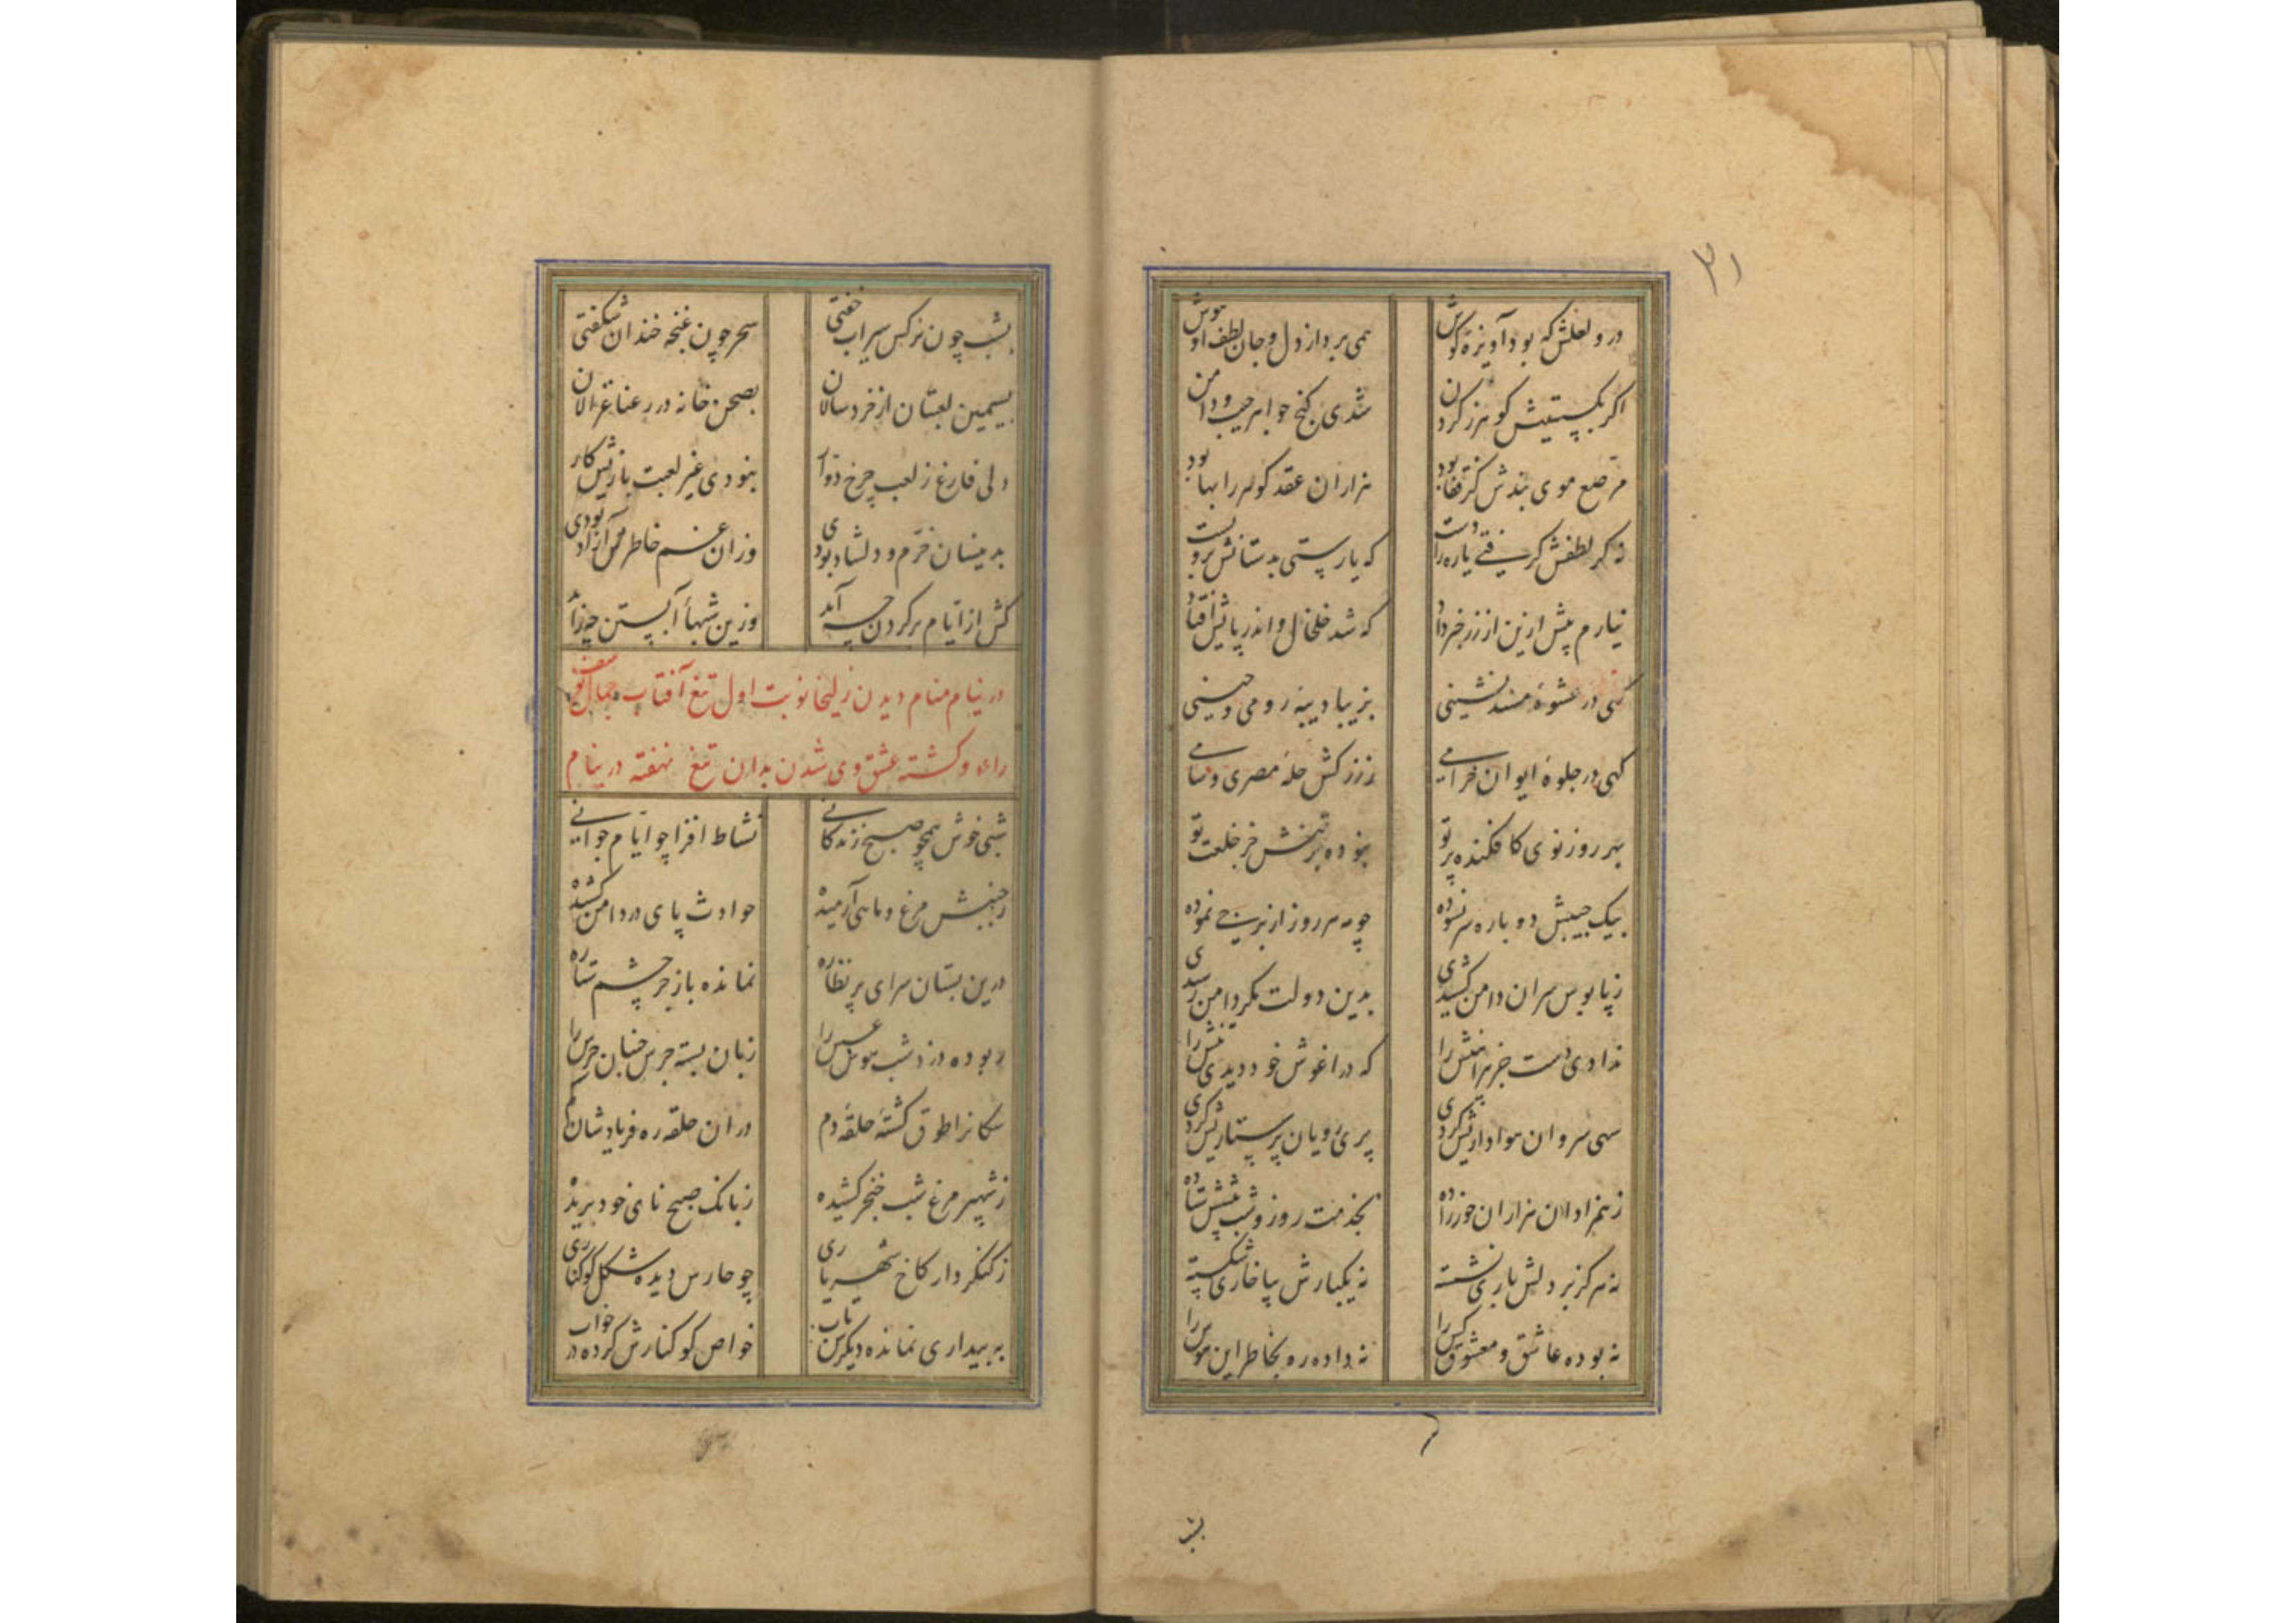 ۳۱
در و لعلش که بود آویزهٔ گوش همی برد از دل و جان لطف او هوش
اکر بکسستیش کوهر ز کردن شدی کنج جواهر جیب و دامن
مرصع موی بندش کز قفا بود هزاران عقد کوهر را بها بود
نه کر لطفش کرفتی یاره را دست که یارستی بدستانش برو بست
نیارم بیش ازین از زر خبر داد که شد خلخال و اندر پایش افتاد
کهی در عشوهٔ مسند نشینی بزیبا دیبهٔ رومی و چینی
کهی در جلوهٔ ایوان خرامی ز زرکش حلهٔ مصری و شامی
بهر روز نوی کافکنده پرتو نبوده بر تنش جز خلعت نو
بیک جیبش دو باره سر نسوده چو مه هر روز از برجی نموده
ز پابوس سران دامن کشیدی بدین دولت مکر دامن رسیدی
ندادی دست جز پیراهنش را که در اغوش خود دیدی تنش را
سهی سروان هواداریش کردی پری رویان پرستاریش کردی
ز همزادان هزاران حورزاده بخدمت روز و شب پیشش ستاده
نه هرکز بر دلش باری نشسته نه یکبارش بپا خاری شکسته
نه بوده عاشق و معشوق کس را نه داده ره بخاطر این هوس را
بشب
بشب چون نرکس سیراب خفتی سحر چون غنچه خندان شکفتی
بسیمین لعبتان از خردسالان بصحن خانه در رعنا غزالان
دلی فارغ ز لعب چرخ دوار نبودی غیر لعبت بازیش کار
بدینسان خرم و دلشاد بودی وزان غم خاطرش آزاد بودی
کش از ایام بر کردن چه آید وزین شبهاء آبستن چه زاید
در نیام منام دیدن زلیخا نوبت اول تیغ آفتاب جمال یوسف
را و کشته عشق وی شدن بدان تیغ نهفته در نیام
شبی خوش همچو صبح زندکانی نشاط افزا چو ایام جوانی
ز جنبش مرغ و ماهی آرمیده حوادث پای در دامن کشیده
درین بستان سرای پر نظاره نمانده باز جز چشم ستاره
ربوده دزد شب هوش عسس را زبان بسته جرس جنبان جرس را
سکانرا طوق کشته حلقهٔ دم در ان حلقه ره فریادشان کم
ز شهپر مرغ شب خنجر کشیده ز بانک صبح نای خود بریده
ز کنکردار کاخ شهریاری چو حارس دیده شکل کوکناری
به بیداری نمانده دیکرش تاب خواص کوکنارش کرده در خواب